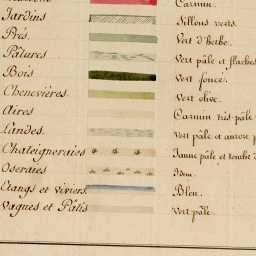 Carmin.
Jardins Sillons verts.
Prés. Vert d'herbe.
Pâtures Vert pâle et flaches
Bois Vert foncé.
Chenevières. Vert olive.
Aires Carmin très pâle
Landes. Vert pâle et aurore p
Chateigneraies Jaune pâle et
Oseraies Idem.
Etangs et viviers. Bleu.
Vagues et Pâtis Vert pâle.